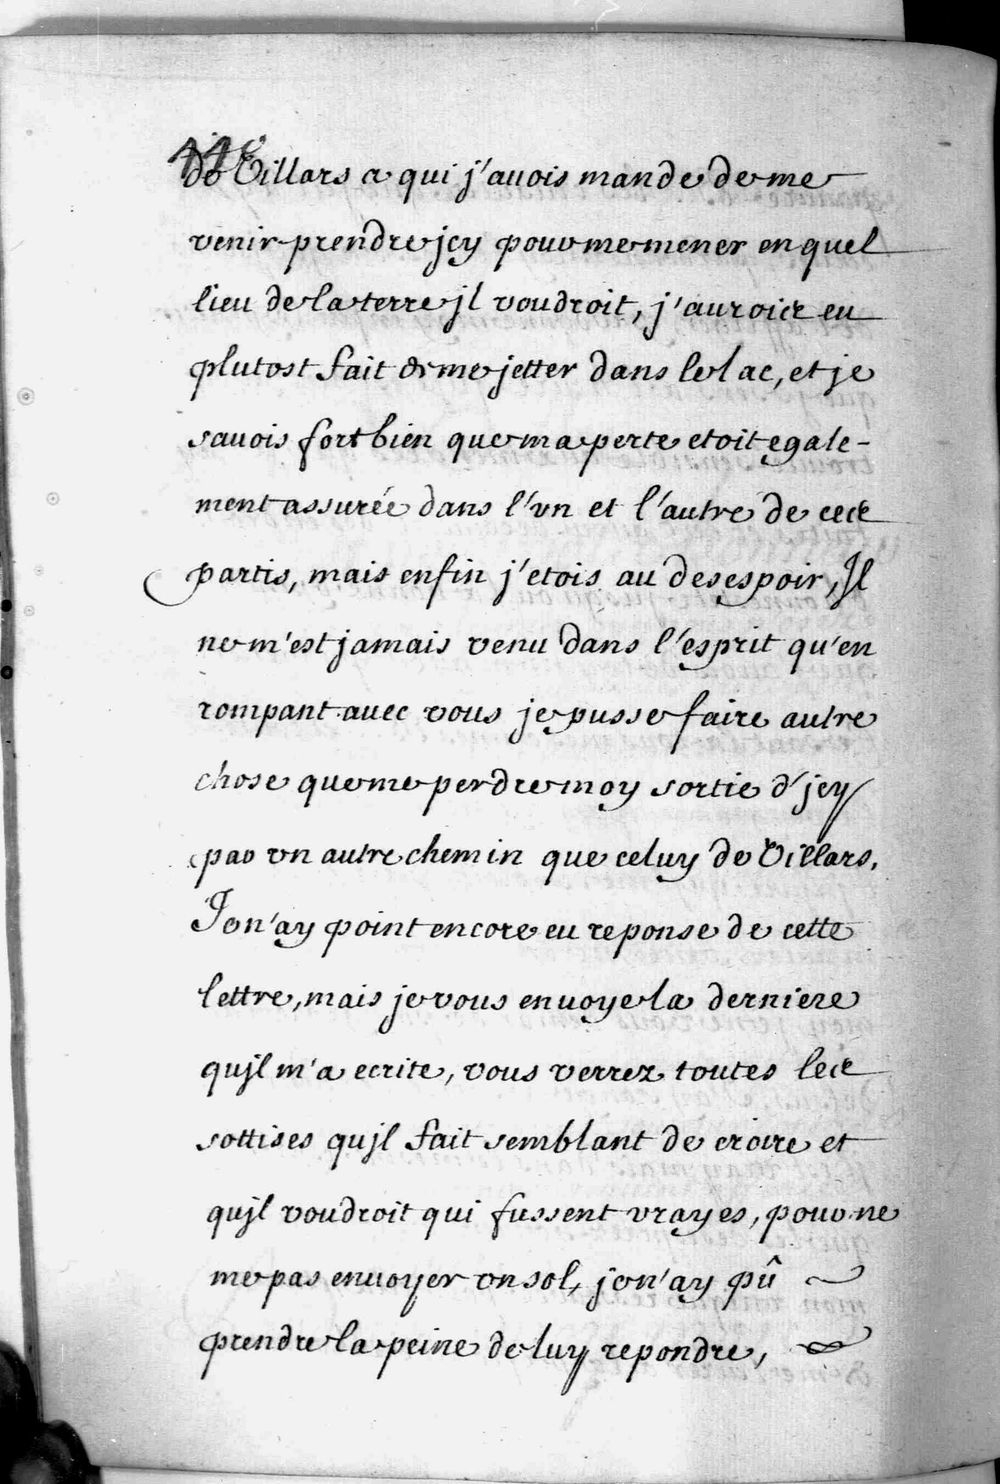 de Villars a qui j'auois mande de me
venir prendre jcy pour me mener en quel
lieu de la terre jl voudroit, j'aurois eu
plutost fait de me jetter dans le lac, et je
sauois fort bien que ma perte etoit egale-
ment assurée dans l'vn et l'autre de ces
partis, mais enfin j'etois au desespoir, Jl
ne m'est jamais venu dans l'esprit qu'en
rompant auec vous je pusse faire autre
chose que me perdre moy sortie d'jcy
par vn autre chemin que celuy de Villars.
Je n'ay point encore eu reponse de cette
lettre, mais je vous enuoye la derniere
qujl m'a ecrite, vous verrez toutes les
sottises qujl fait semblant de croire et
qujl voudroit qui fussent vrayes, pour ne
me pas enuoyer vn sol, je n'ay pû
prendre la peine de luy repondre,